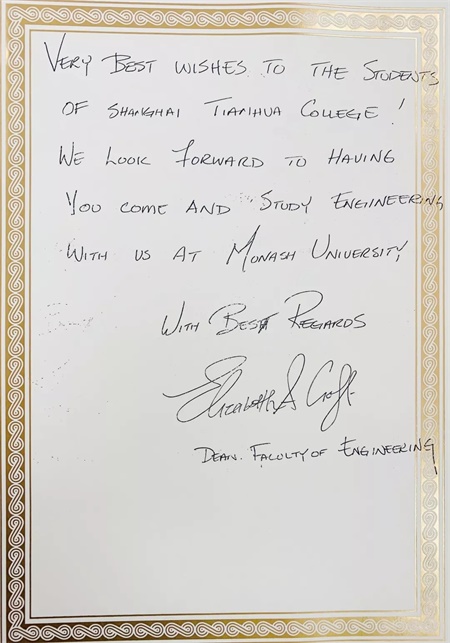 VERY BEST WISHES TO THE STUDENTS
OF SHANGHAI TIANHUA COLLEGE!
WE LOOK FORWARD TO HAVING
YOU COME AND STUDY ENGINEERING
WITH US AT MONASH UNIVERSITY,
WITH BEST REGARDS
Elizabeth A Croft
DEAN. FACULTY OF ENGINEERING